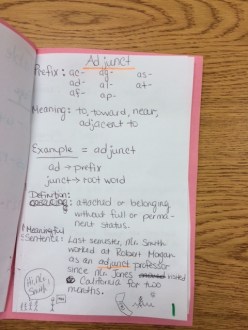 Adjunct
Prefix: ac- ag- as-
ad- al- at-
af- ap-
Meaning: to, toward, near,
adjacent to
Example = adjunct
ad → prefix
junct → root word
Definition:
: attached or belonging
without full or perma-
nent status.
Meaningful
Sentence: Last semester, Mr. Smith
worked at Robert Morgan
as an adjunct professor
since Mr. Jones visited
California for two
months.
Mr.
Smith
1